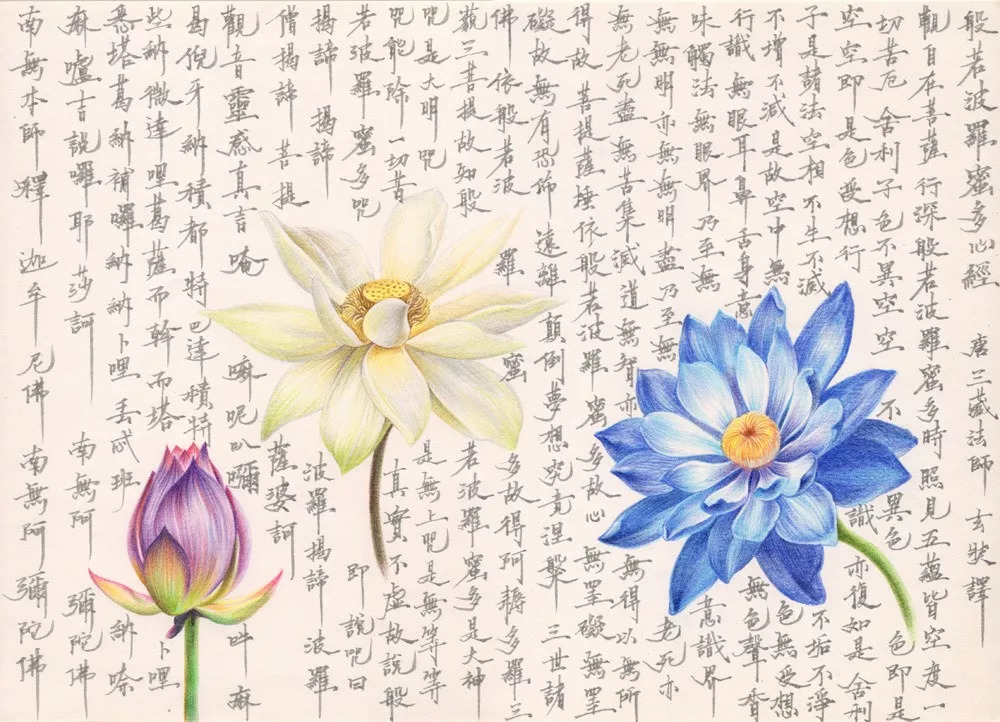 般若波羅蜜多心經 唐三藏法師 玄奘譯
觀自在菩薩 行深般若波羅蜜多時 照見五蘊皆空度一
切苦厄 舍利子 色不異空空 不異色 色即是
空空即 是色受想行 識 亦復如是 舍利
子是諸法空相 不生不滅 不垢不淨
不增不減 是故空中 無 色無受想
行識 無眼耳鼻舌身意 無色聲香
味觸法無眼界乃至無 意識界
無無明亦無無明盡乃至無 老死亦
無老死盡無苦集滅道無智亦 無得以無所
得故 菩提薩埵依般若波羅蜜多故心 無罣礙無罣
礙故無有恐怖 遠離 顛倒夢想究竟涅槃 三世諸
佛 依般若波 羅 蜜 多故得阿耨多羅三
藐三菩提故知般 若波羅蜜多是大神
咒是大明咒 是無上咒是無等等
咒能除一切苦 真實不虛故說般
若波羅蜜多咒 即說咒曰
揭諦 揭諦 波羅揭諦 波羅
僧揭諦 菩提 薩婆訶
觀音靈感真言 唵 嘛呢叭彌 吽 麻
曷倪牙納積都特巴達積特
些納微達哩葛薩而斡而塔 卜哩
悉塔葛納補囉納納卜哩丟忒班 納嗪
麻嚧吉說囉耶莎訶 南無阿彌陀佛
南無本師釋迦牟尼佛 南無阿彌陀佛